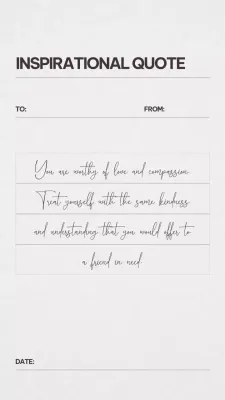 INSPIRATIONAL QUOTE
TO: FROM:
You are worthy of love and compassion.
Treat yourself with the same kindness
and understanding that you would offer to
a friend in need
DATE: